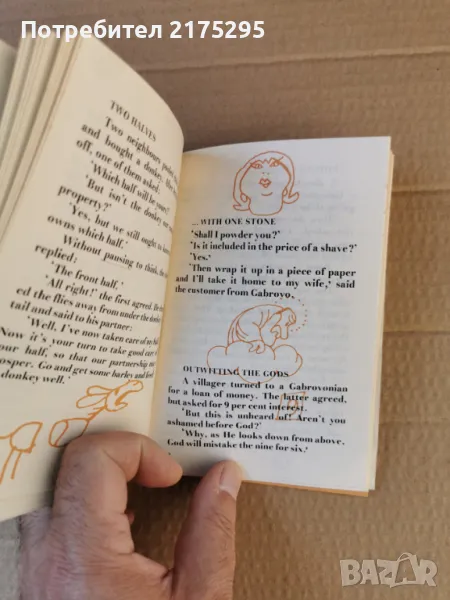 Потребител 2175295
TWO HALVES
Two neighbours
and bought a donkey.
off, one of them asked:
'Which half will be yours?'
'But isn't the donkey our
property?'
'Yes, but we still ought to
owns which half.'
Without pausing to think, the
replied:
'The front half.'
'All right!' the first agreed. He
ed the flies away from under the donkey
tail and said to his partner:
'Well, I've now taken care of my
Now it's your turn to take good care
our half, so that our partnership
osper. Go and get some barley and feed
donkey well.'
... WITH ONE STONE
'Shall I powder you?'
'Is it included in the price of a shave?'
'Yes.'
'Then wrap it up in a piece of paper
and I'll take it home to my wife,' said
the customer from Gabrovo.
OUTWITTING THE GODS
A villager turned to a Gabrovonian
for a loan of money. The latter agreed,
but asked for 9 per cent interest.
'But this is unheard of! Aren't you
ashamed before God?'
'Why, as He looks down from above,
God will mistake the nine for six.'
bazar.bg